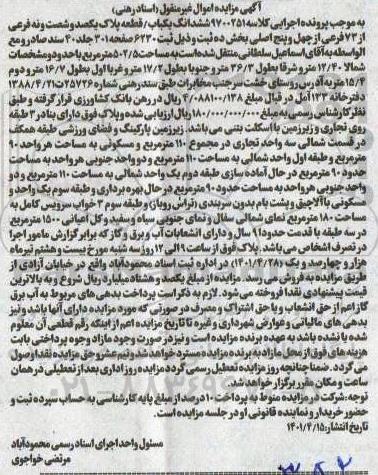 آگهی مزایده اموال غیرمنقول (اسناد رهنی)
به موجب پرونده اجرایی کلاسه ۹۷۰۰۲۵۱ ششدانگ یکباب / قطعه پلاک یکصد و شصت و نه فرعی
از ۷۳ فرعی از چهل و پنج اصلی بخش ده ثبت و ذیل ثبت ۶۲۳۰ صفحه ۳۰۱ جلد ۴۰ سند صادر و مع
الواسطه به آقای اسماعیل سلطانی منتقل شده است به مساحت ۵۰۲/۵ مترمربع با حدود و مشخصات
شمالا ۱۲/۴۰ متر شرقا اول بطول ۳۶/۳ مترو جنوبا بطول ۱۷/۲ مترو غربا اول بطول ۱۶/۷ مترو دوم
۱۵/۴ متر به آدرس روستای خشت سر جنب مخابرات طبق سند رهنی شماره ۲۵۷۲۶ ت ۱۳۸۸/۴/۲۱
دفترخانه ۱۳۳ آمل در قبال مبلغ ۴/۰۸۸۱۰۰/۱۳۸ ریال در رهن بانک کشاورزی قرار گرفته و طبق
نظر کارشناس رسمی به مبلغ ۱۸۰/۰۰۰/۰۰۰/۰۰۰ ریال ارزیابی شده و پلاک فوق دارای بنادر ۳ طبقه
روی تجاری و زیرزمین با اسکلت بتنی می باشد. زیرزمین پارکینگ و فضای ورزشی طبقه همکف
در قسمت شمالی سه واحد تجاری در مجموع ۱۱۰ مترمربع و مسکونی به مساحت هر واحد ۹۰
مترمربع و طبقه اول واحد شمالی به مساحت ۱۱۰ مترمربع و دو واحد جنوبی هر واحد به مساحت
حدود ۹۰ مترمربع در حال آماده سازی طبقه دوم یک واحد شمالی به مساحت ۱۱۰ مترمربع و دو
واحد جنوبی هر واحد به مساحت حدود ۹۰ مترمربع در حال بهره برداری و طبقه سوم یک واحد و
مسکونی با آلاچیق و پشت بام بدون سربندی (تراس رویان) و طبقه سوم ۳ خواب سرویس کامل به
مساحت ۱۸۰ مترمربع نمای شمالی سفال و نمای جنوبی سیاه و سفید و کل اعیانی ۱۵۰۰ مترمربع
در سه طبقه با قدمت حدود ۹ سال و دارای انشعابات آب برق و گاز که برابر گزارش مامور اجرا
در تصرف اشخاص می باشد. پلاک فوق از ساعت ۹ الی ۱۲ روز سه شنبه مورخ بیست و هشتم تیر ماه
هزار و چهارصد و یک (۱۴۰۱/۴/۲۸) در اداره ثبت اسناد محمودآباد واقع در خیابان آزادی از
طریق مزایده به فروش می رسد. مزایده از مبلغ یکصد و هشتاد میلیارد ریال شروع و به بالاترین
قیمت پیشنهادی نقدا فروخته می شود. لازم به ذکر است پرداخت بدهی های مربوط به آب برق
گاز اعم از حق انشعاب و یا حق اشتراک و مصرف در صورتی که مورد مزایده دارای آنها باشد و نیز
بدهی های مالیاتی و عوارض شهرداری و غیره تا تاریخ مزایده اعم از اینکه رقم قطعی آن معلوم
شده یا نشده باشد به عهده برنده مزایده است و نیز در صورت وجود مازاد وجوه پرداختی بابت
هزینه های فوق از محل مازاد به برنده مزایده مسترد خواهد شد و نیم عشر و حق مزایده نقدا وصول
می گردد. ضمنا چنانچه روز مزایده تعطیل رسمی گردد مزایده روز اداری بعد از تعطیلی در همان
ساعت و مکان مقرر برگزار خواهد شد.
توجه: شرکت در مزایده منوط به پرداخت ۱۰ درصد از مبلغ پایه کارشناسی به حساب سپرده ثبت و
حضور خریدار و نماینده قانونی او در جلسه مزایده است.
تاریخ انتشار: ۱۴۰۱/۴/۱۵
مسئول واحد اجرای اسناد رسمی محمودآباد
مرتضی خواجوی